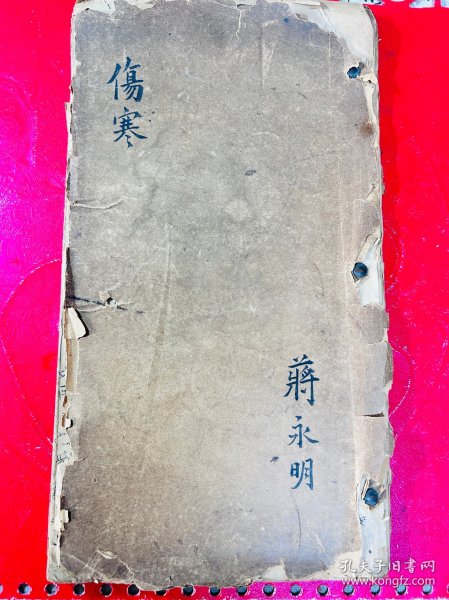 傷寒
蔣永明
孔夫子旧书网
www.kongfz.com